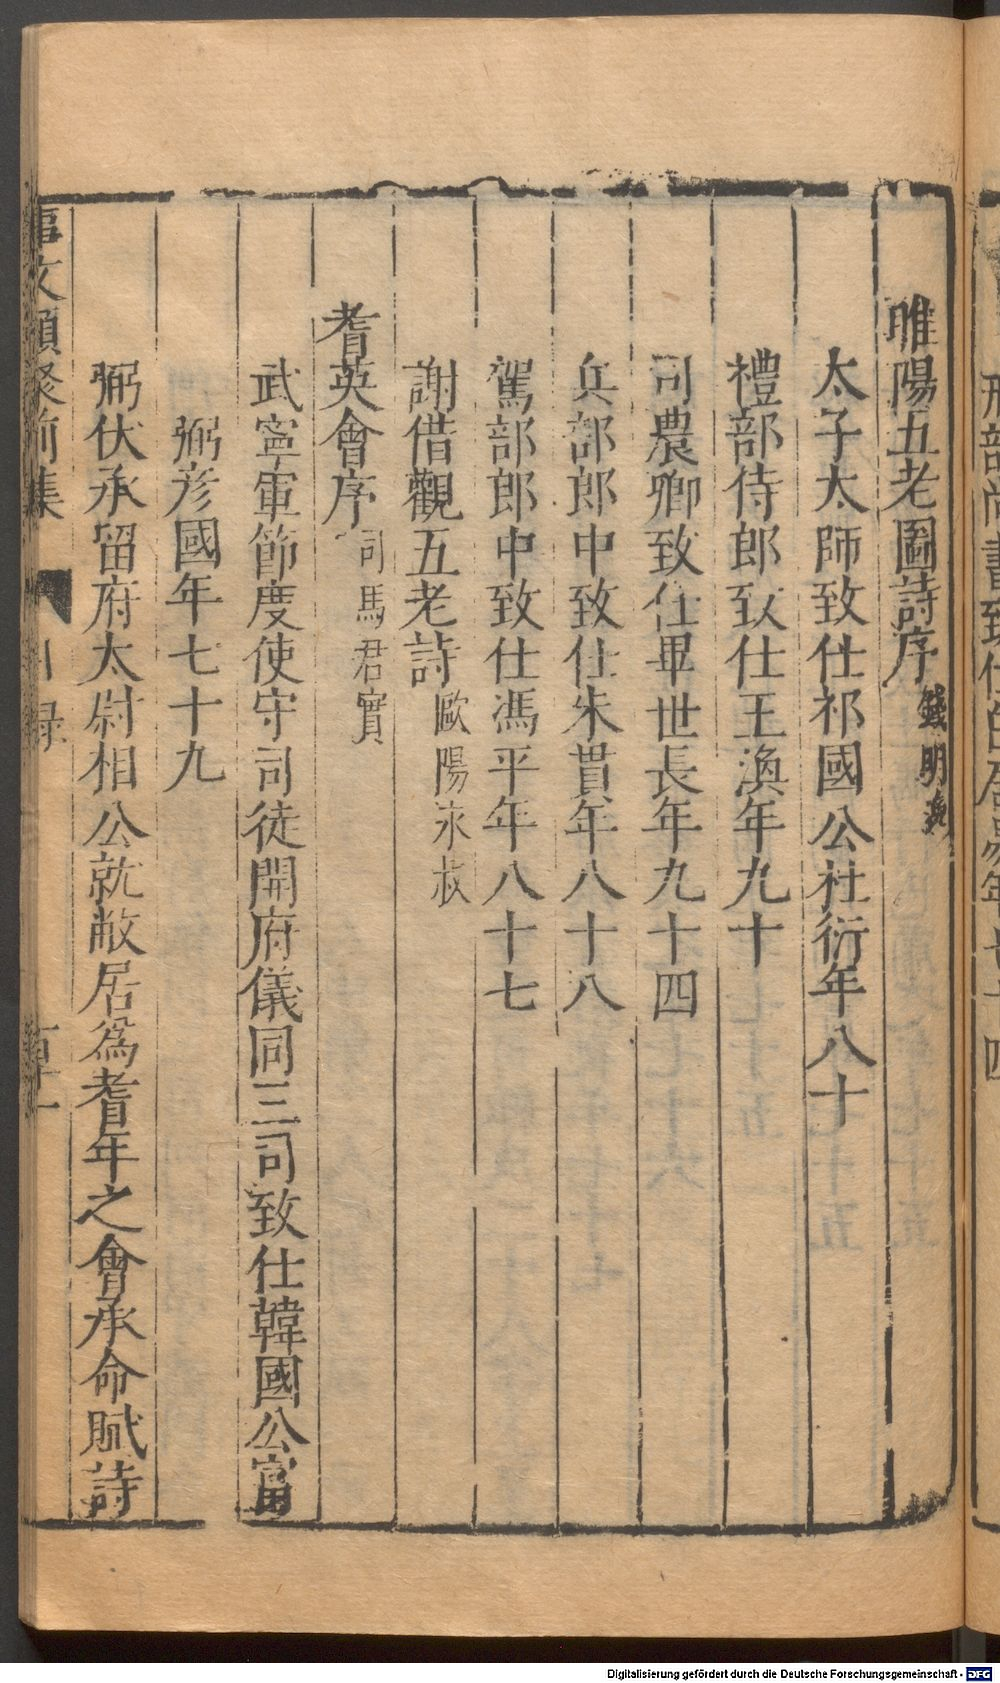 睢陽五老圖詩序 錢明逸
太子太師致仕祁國公杜衍年八十
禮部侍郎致仕王渙年九十
司農卿致仕畢世長年九十四
兵部郎中致仕朱貫年八十八
駕部郎中致仕馮平年八十七
謝借觀五老詩 歐陽永叔
耆英會序 司馬君實
武寧軍節度使守司徒開府儀同三司致仕韓國公富
弼彥國年七十九
弼伏承留府太尉相公就敝居為耆年之會承命賦詩
事文類聚前集 目録
Digitalisierung gefördert durch die Deutsche Forschungsgemeinschaft - DFG